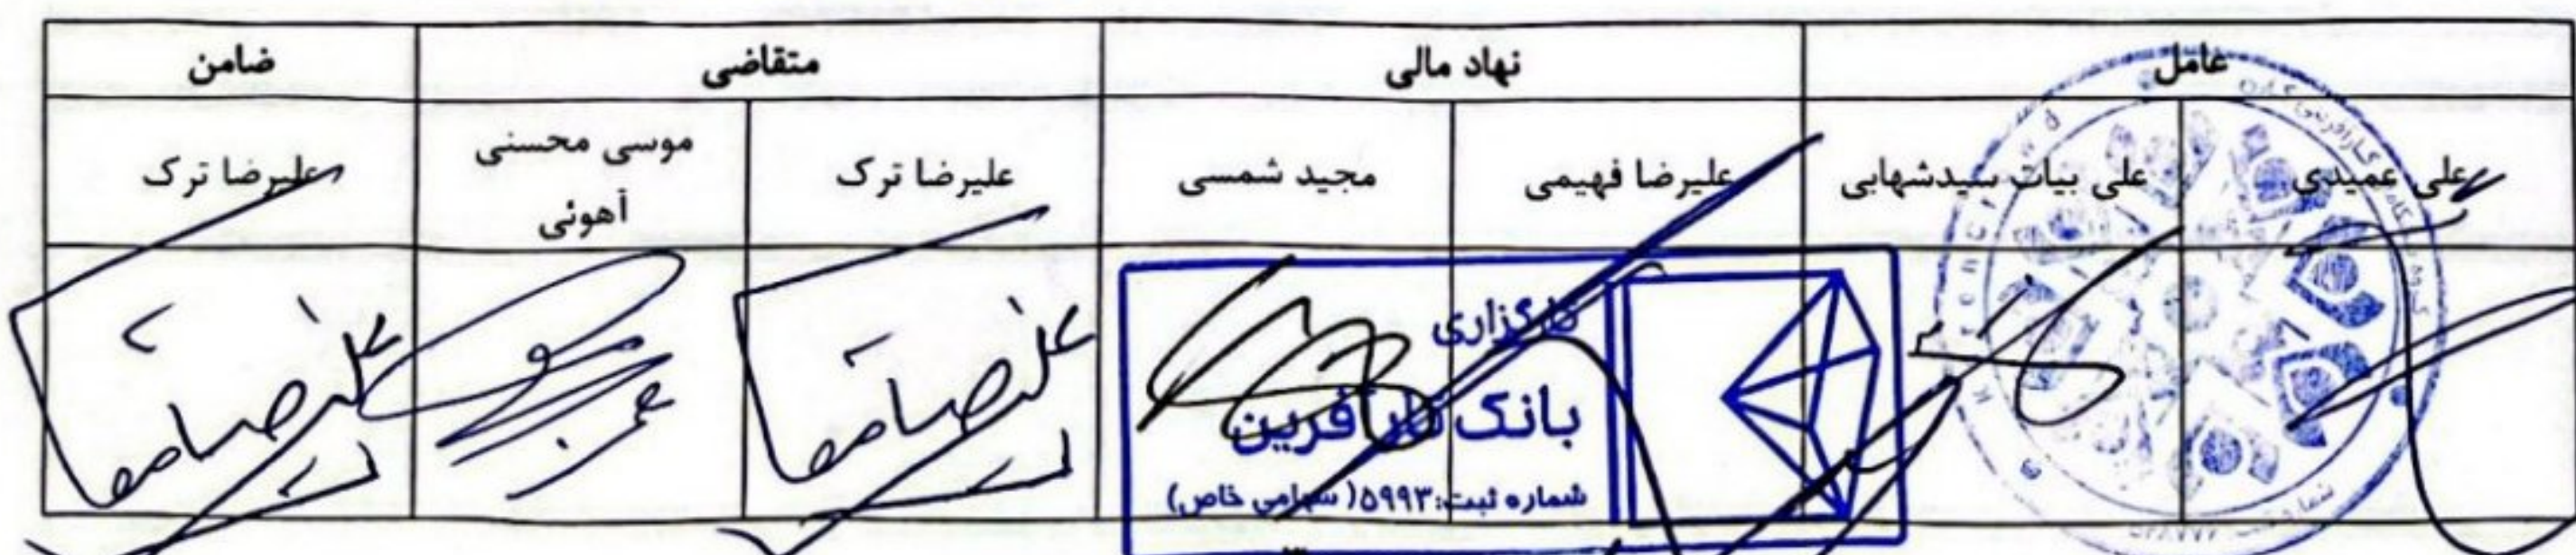 عامل
نهاد مالی
متقاضی
ضامن
علی عمیدی
علی بیات سیدشهابی
علیرضا فهیمی
مجید شمسی
علیرضا ترک
موسی محسنی
آهوئی
علیرضا ترک
کارگزاری
بانک کارآفرین
شماره ثبت:۵۹۹۳( سهامی خاص)